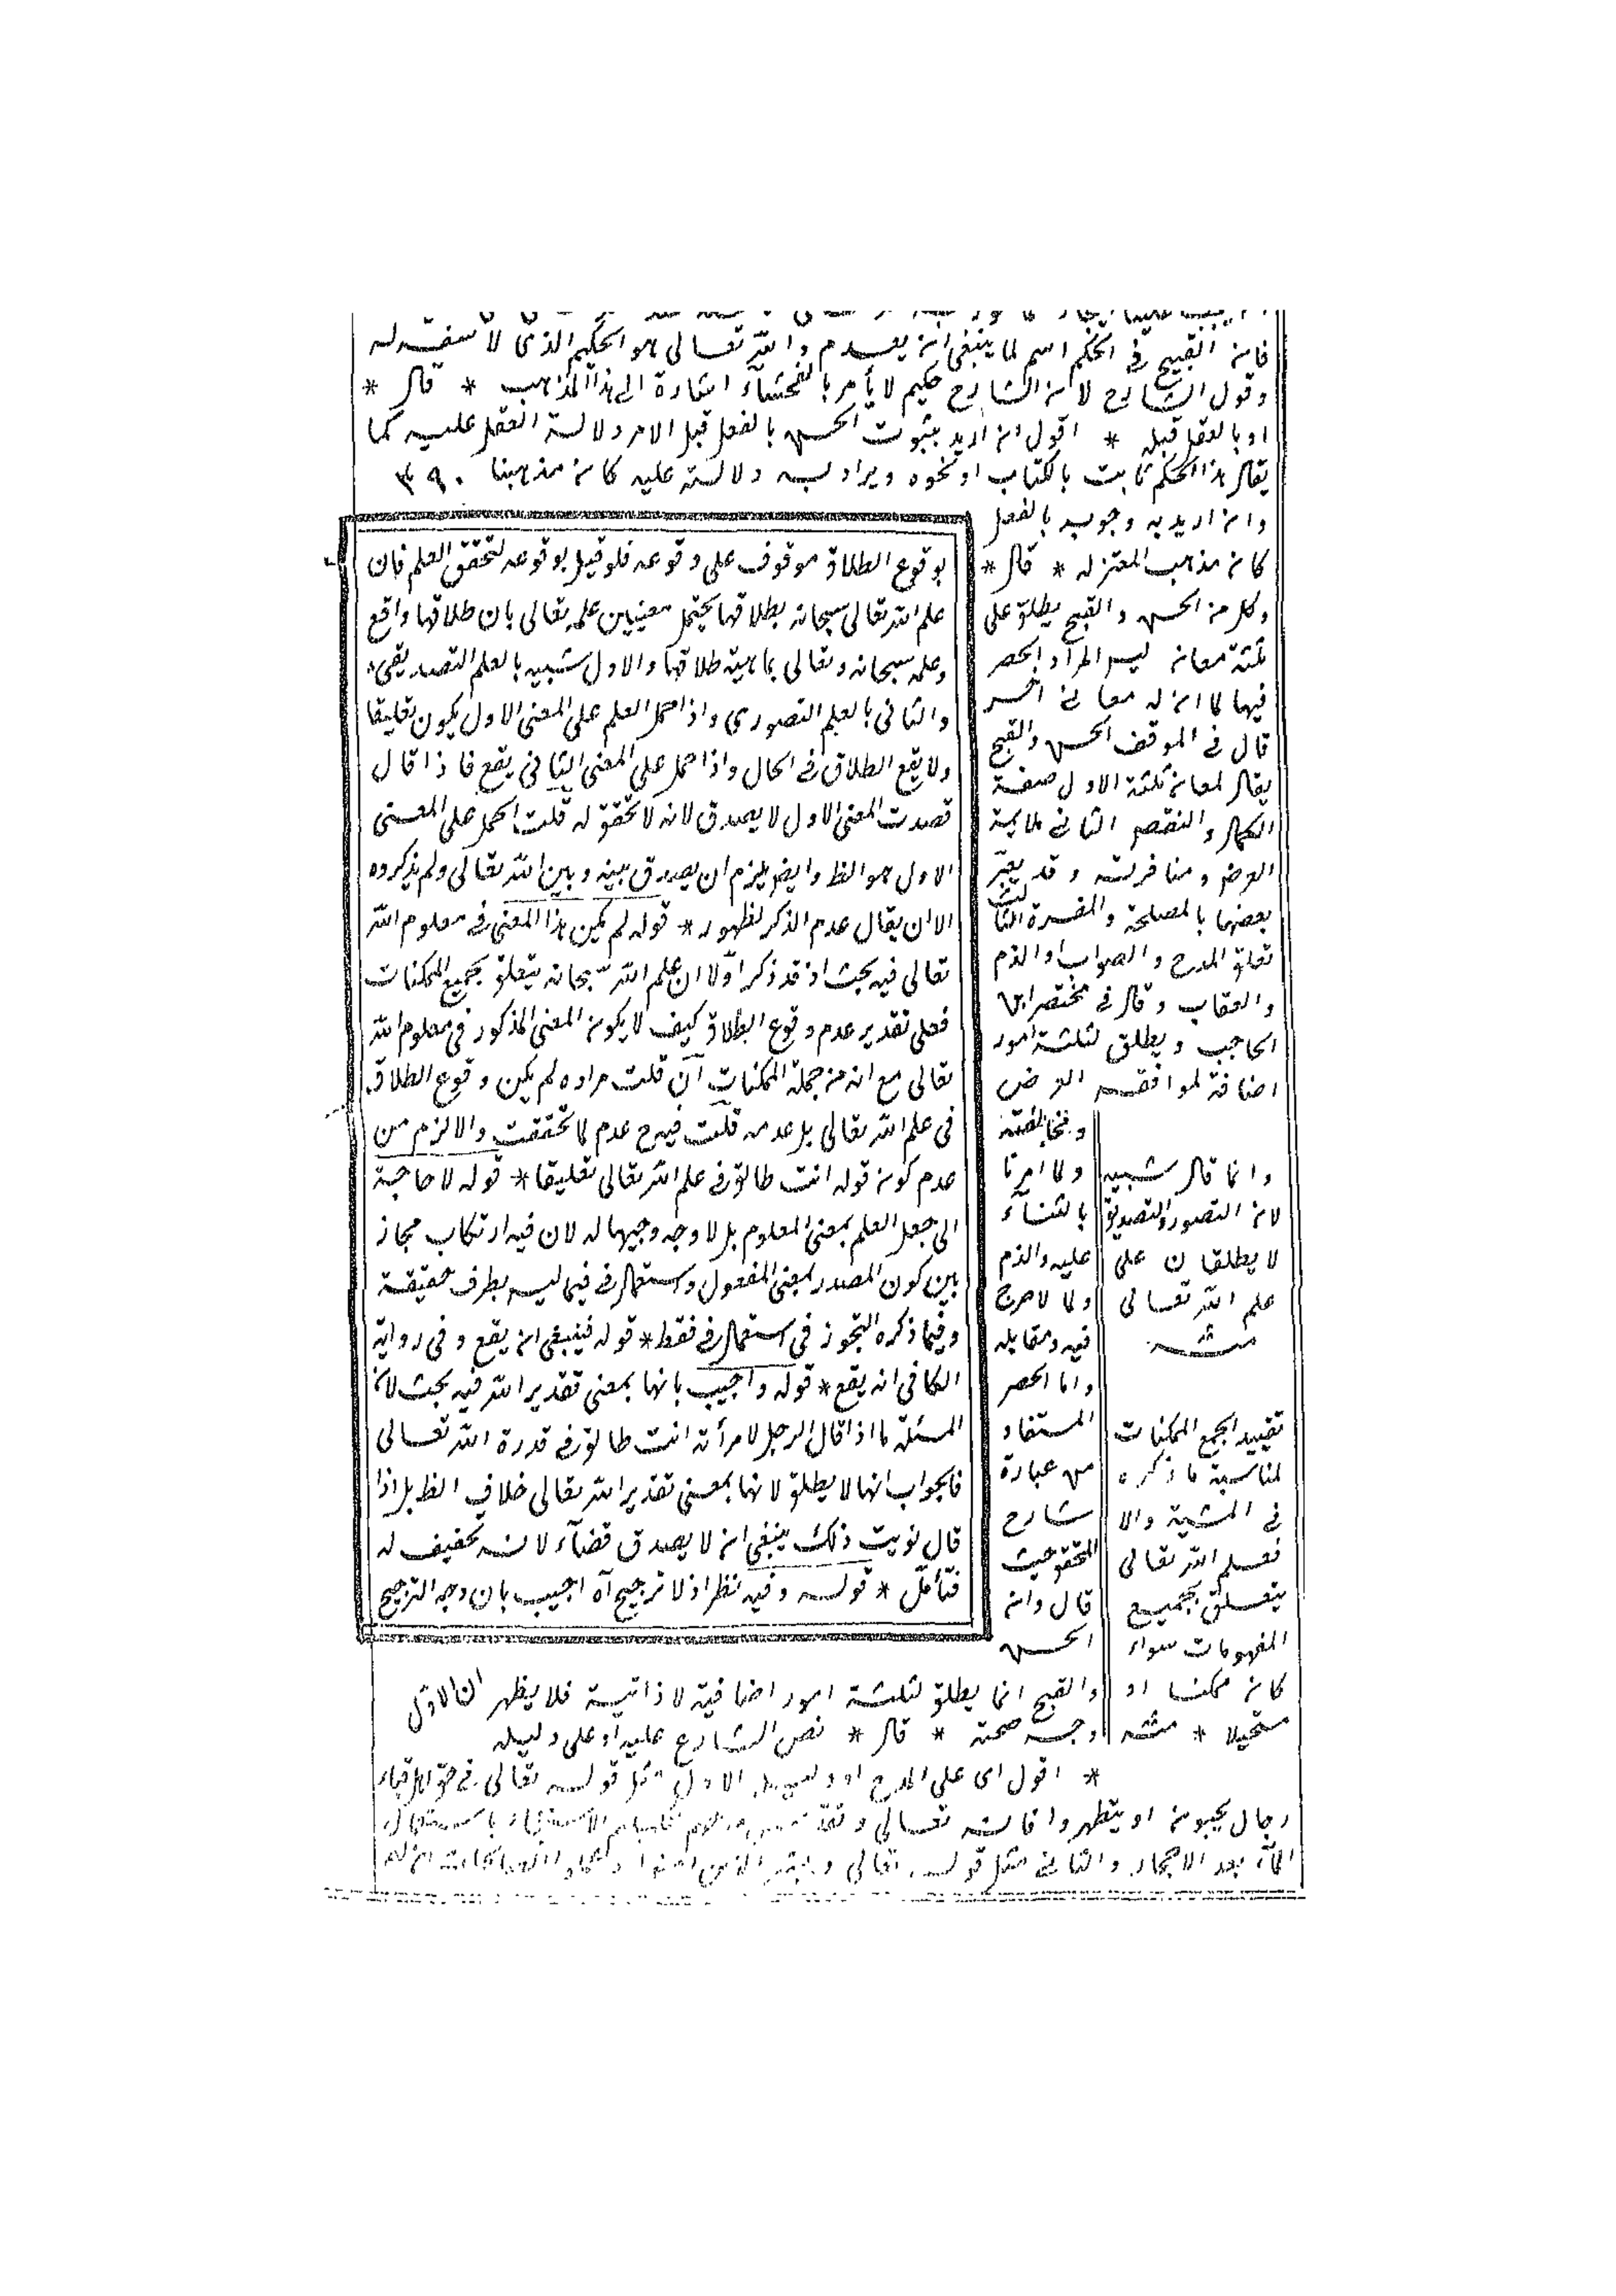 فان القبيح فى الحكم اسم لما ينبغى ان يعدم والله تعالى هو الحكيم الذى لا سفه له
وقول الشارح لان الشارح حكيم لا يأمر بالفحشاء اشارة الى هذا المذهب * قال *
او بالعقل قبله * اقول ان اريد بثبوت الحسن بالفعل قبل الامر دلالة العقل عليه كما
يقال هذا الحكم ثابت بالكتاب او نحوه ويراد به دلالته عليه كان مذهبنا
وان اريد به وجوبه بالفعل
كان مذهب المعتزله * قال *
وكل من الحسن والقبح يطلق على
ثلثة معان ليس المراد الحصر
فيها لما ان له معانى اخر
قال فى المواقف الحسن والقبح
يقال لمعان ثلثة الاول صفة
الكمال والنقص الثانى ملايمة
الغرض ومنافرته وقد يعبر
بعضهما بالمصلحة والمفسدة الثالث
تعلق المدح والصواب او الذم
والعقاب وقال فى مختصر ابن
الحاجب ويطلق لثلثة امور
اضافة لموافقه الغرض
ومخالفته
ولما امرنا
بالثناء
عليه والذم
ولما لا حرج
فيه ومقابله
واما الحصر
المستفاد
من عبارة
شارح
المحقق حيث
قال وان
الحسن
والقبح انما يطلق لثلثة امور اضافية لا ذاتية فلا يظهر
وجه صحته * قال * نص الشارع عليه او على دليله
* اقول اى على المدح او دليله الاول مثل قوله تعالى فى حق اهل قباء
رجال يحبون ان يتطهروا فانه تعالى
الماء بعد الاحجار والثانى مثل قوله تعالى وبشر الذين امنوا وعملوا الصالحات ان لهم
بوقوع الطلاق موقوف على وقوعه فلو قيل بوقوعه لتحقق العلم فان
علم الله تعالى سبحانه بطلاقها يحتمل معنيين علمه تعالى بان طلاقها واقع
وعلمه سبحانه وتعالى بماهية طلاقها والاول شبيه بالعلم التصديقى
والثانى بالعلم التصورى واذا حمل العلم على المعنى الاول يكون تعليقا
ولا يقع الطلاق فى الحال واذا حمل على المعنى الثانى يقع فاذا قال
قصدت المعنى الاول لا يصدق لانه لا تحقق له قلت الحمل على المعنى
الاول هو الظ وايض يلزم ان يصدق بينه وبين الله تعالى ولم يذكروه
الا ان يقال عدم الذكر لظهوره * قوله لم يكن هذا المعنى فى معلوم الله
تعالى فيه بحث اذ قد ذكر اولا ان علم الله سبحانه يتعلق بجميع الممكنات
فعلى تقدير عدم وقوع الطلاق كيف لا يكون المعنى المذكور فى معلوم الله
تعالى مع انه من جملة الممكنات آن قلت مراده لم يكن وقوع الطلاق
فى علم الله تعالى بل عدمه قلت فيه ح عدم لما تحققت والا لزم من
عدم كون قوله انت طالق فى علم الله تعالى تعليقا * قوله لا حاجة
الى جعل العلم بمعنى المعلوم بل لا وجه وجيها له لان فيه ارتكاب مجاز
بين كون المصدر بمعنى المفعول واستعمال فى فيما ليس بظرف حقيقة
وفيما ذكره التجوز فى استعمال فى فقط * قوله فينبغى ان يقع وفى رواية
الكافى انه يقع * قوله واجيب بانها بمعنى تقدير الله فيه بحث لان
المسئلة ما اذا قال الرجل لامرأته انت طالق فى قدرة الله تعالى
فالجواب انها لا يطلق لانها بمعنى تقدير الله تعالى خلاف الظ بل اذا
قال نويت ذلك ينبغى ان لا يصدق قضاء لانه تخفيف له
فتأمل * قوله وفيه نظر اذ لا ترجيح آه اجيب بان وجه الترجيح
ان الاول
وانما قال شبيه
لان التصور والتصديق
لا يطلقان على
علم الله تعالى
منه
تقييد الجمع الممكنات
لمناسبة ما ذكره
فى المشية والا
فعلم الله تعالى
يتعلق بجميع
المفهومات سواء
كان ممكنا او
مستحيلا * منه